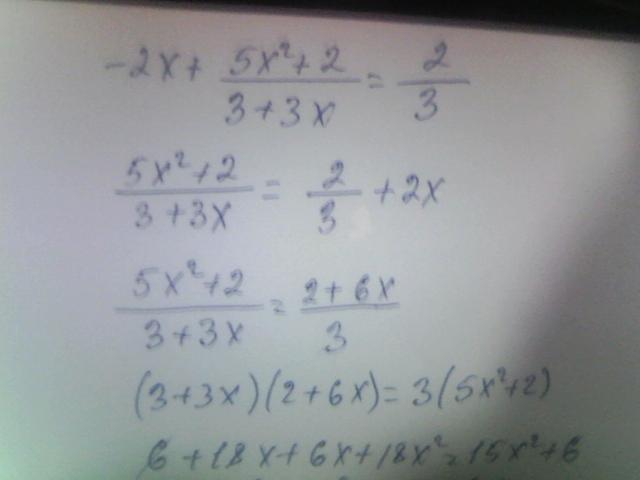 -2x + (5x²+2)/(3+3x) = 2/3
(5x²+2)/(3+3x) = 2/3 + 2x
(5x²+2)/(3+3x) = (2+6x)/3
(3+3x)(2+6x) = 3(5x²+2)
6+18x+6x+18x² = 15x²+6